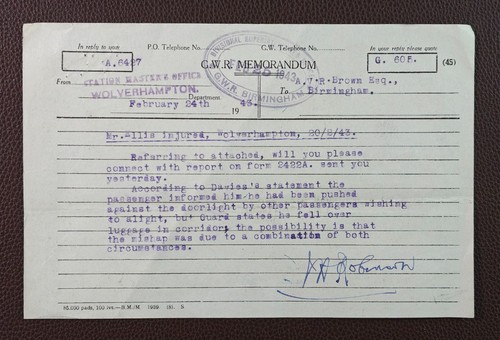 In reply to your P.O. Telephone No. G.W. Telephone No. In your reply please quote
A.6427 G. 605. (45)
G.W.R. MEMORANDUM
DIVISIONAL SUPERINTENDENT
FEB 25 1943
G.W.R. BIRMINGHAM
From STATION MASTER'S OFFICE
WOLVERHAMPTON.
To A.T.R. Brown Esq.,
Birmingham.
Department
February 24th 19 43.
Mr. Ellis injured, Wolverhampton, 20/2/43.
Referring to attached, will you please
connect with report on form 2422A. sent you
yesterday.
According to Davies's statement the
passenger informed him he had been pushed
against the doorlight by other passengers wishing
to alight, but Guard states he fell over
luggage in corridor, the possibility is that
the mishap was due to a combination of both
circumstances.
Robinson